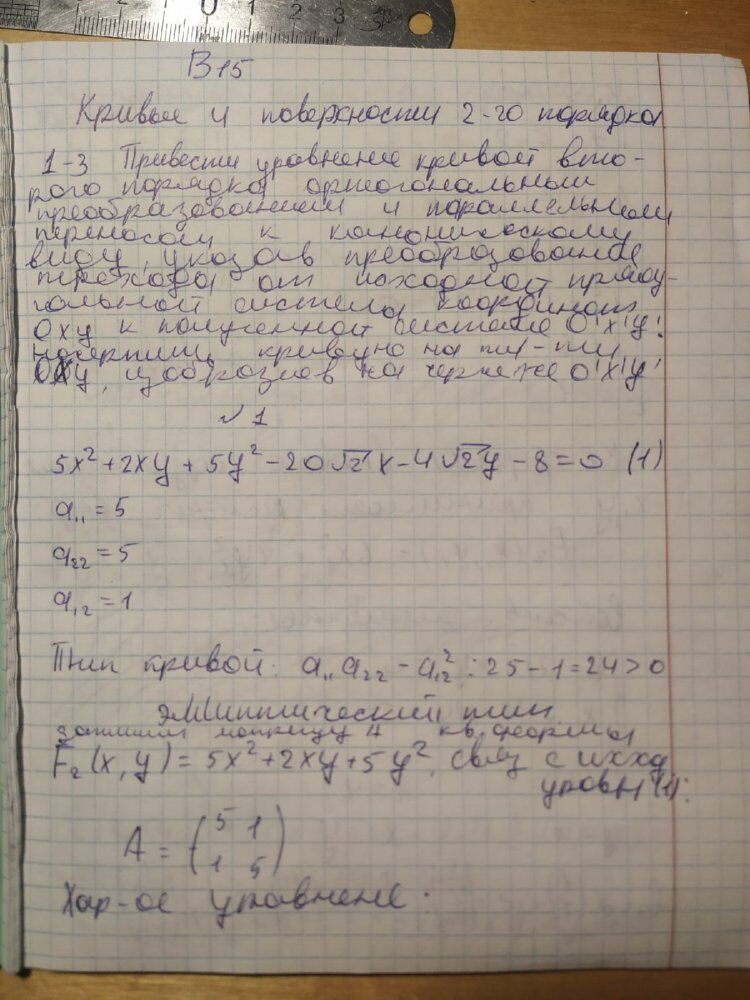 2 1 2 3
В15
Кривые и поверхности 2-го порядка
1-3 Привести уравнение кривой вто-
рого порядка ортогональным
преобразованием и параллельным
переносом к каноническому
виду, указав преобразование
перехода от исходной прямоу-
гольной системы координат
Oxy к полученной системе O'x'y'.
Начертить кривую на пл-ти
OXy, изобразив на чертеже O'x'y'
№1
5x² + 2xy + 5y² - 20√2 x - 4√2 y - 8 = 0 (1)
a₁₁ = 5
a₂₂ = 5
a₁₂ = 1
Тип кривой: a₁₁a₂₂ - a₁₂² : 25 - 1 = 24 > 0
эллиптический тип
запишем матрицу A кв. формы
F₂(x, y) = 5x² + 2xy + 5y², связ с исход
уравн (1):
A = (5 1
1 5)
Хар-ое уравнение: